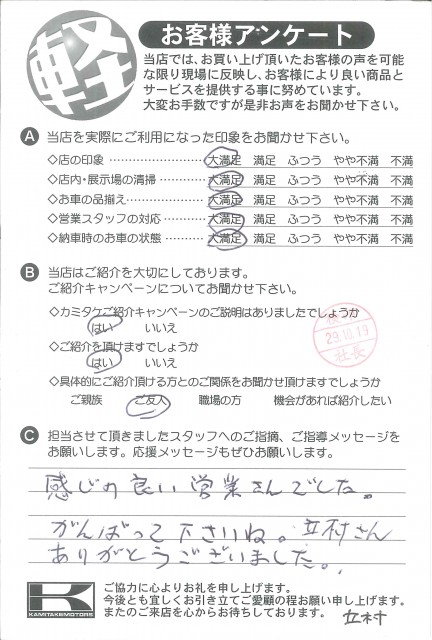 軽
お客様アンケート
当店では、お買い上げ頂いたお客様の声を可能
な限り現場に反映し、お客様により良い商品と
サービスを提供する事に努めています。
大変お手数ですが是非お声をお聞かせ下さい。
A 当店を実際にご利用になった印象をお聞かせ下さい。
◇店の印象 ………………… 大満足 満足 ふつう やや不満 不満
◇店内・展示場の清掃………… 大満足 満足 ふつう やや不満 不満
◇お車の品揃え……………… 大満足 満足 ふつう やや不満 不満
◇営業スタッフの対応………… 大満足 満足 ふつう やや不満 不満
◇納車時のお車の状態………… 大満足 満足 ふつう やや不満 不満
B 当店はご紹介を大切にしております。
ご紹介キャンペーンについてお聞かせ下さい。
◇カミタケご紹介キャンペーンのご説明はありましたでしょうか
はい いいえ
◇ご紹介を頂けますでしょうか
はい いいえ
29.10.19
社長
◇具体的にご紹介頂ける方とのご関係をお聞かせ頂けますでしょうか
ご親族 ご友人 職場の方 機会があれば紹介したい
C 担当させて頂きましたスタッフへのご指摘、ご指導メッセージを
お願いします。応援メッセージもぜひお願いします。
感じの良い営業さんでした。
がんばって下さいね。立村さん
ありがとうございました。
K
KAMITAKEMOTORS
ご協力に心よりお礼を申し上げます。
今後とも宜しくお引き立てご愛顧の程お願い申し上げます。
またのご来店を心からお待ちしております。 立村